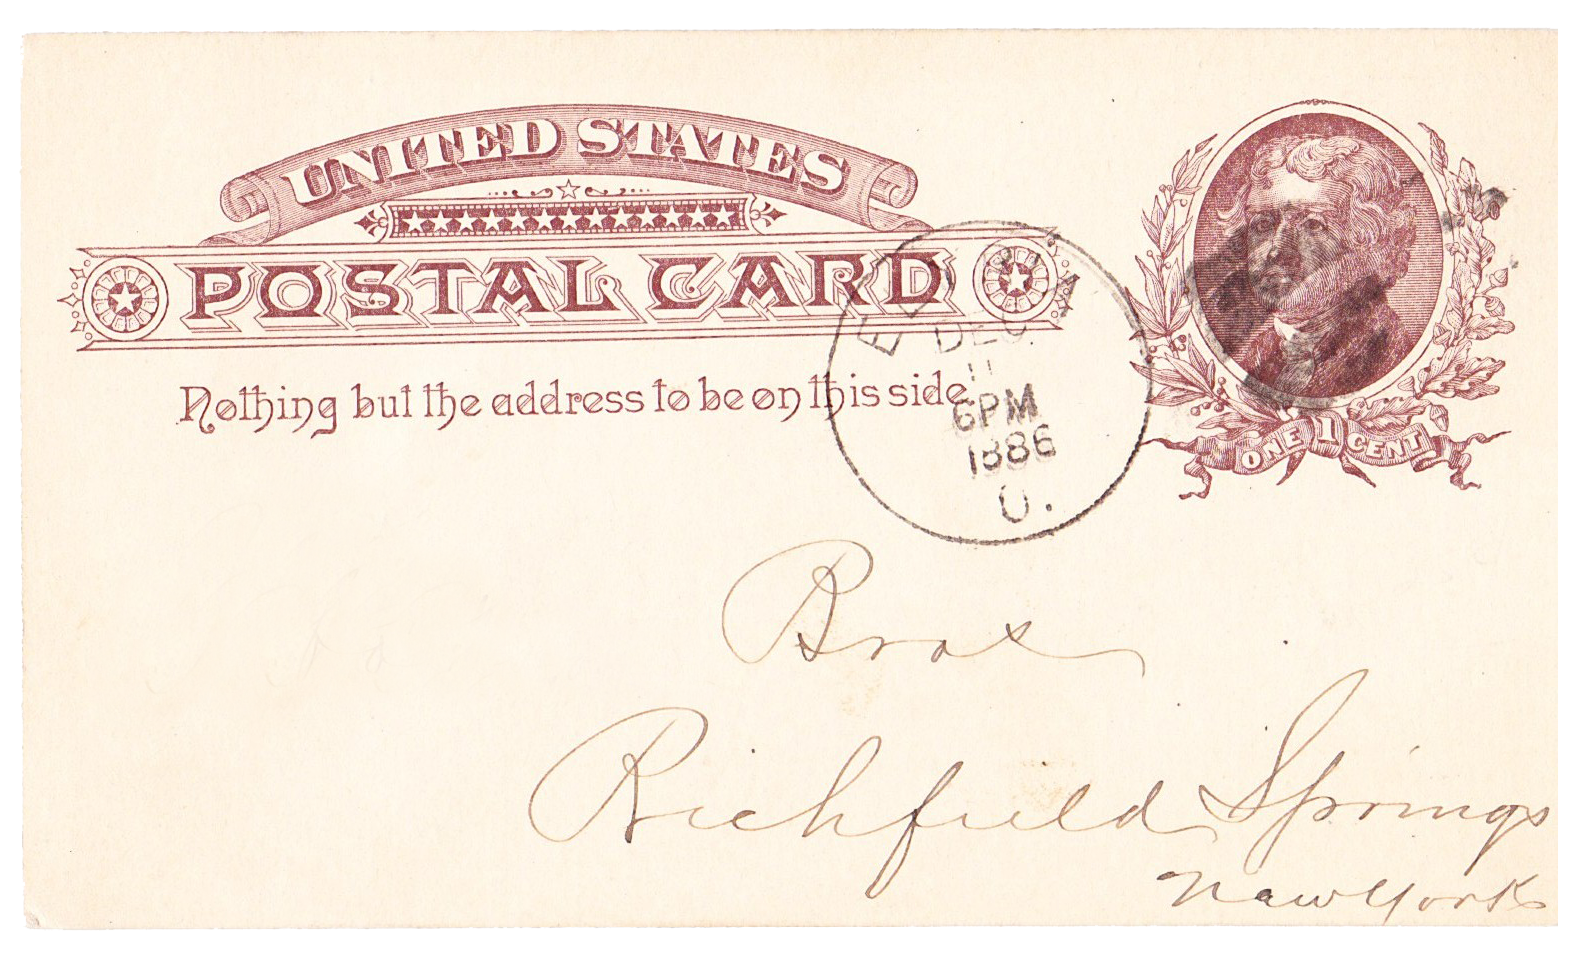 UNITED STATES
POSTAL CARD
Nothing but the address to be on this side.
DEC
11
6PM
1886
O.
ONE 1 CENT
Richfield Springs
New York